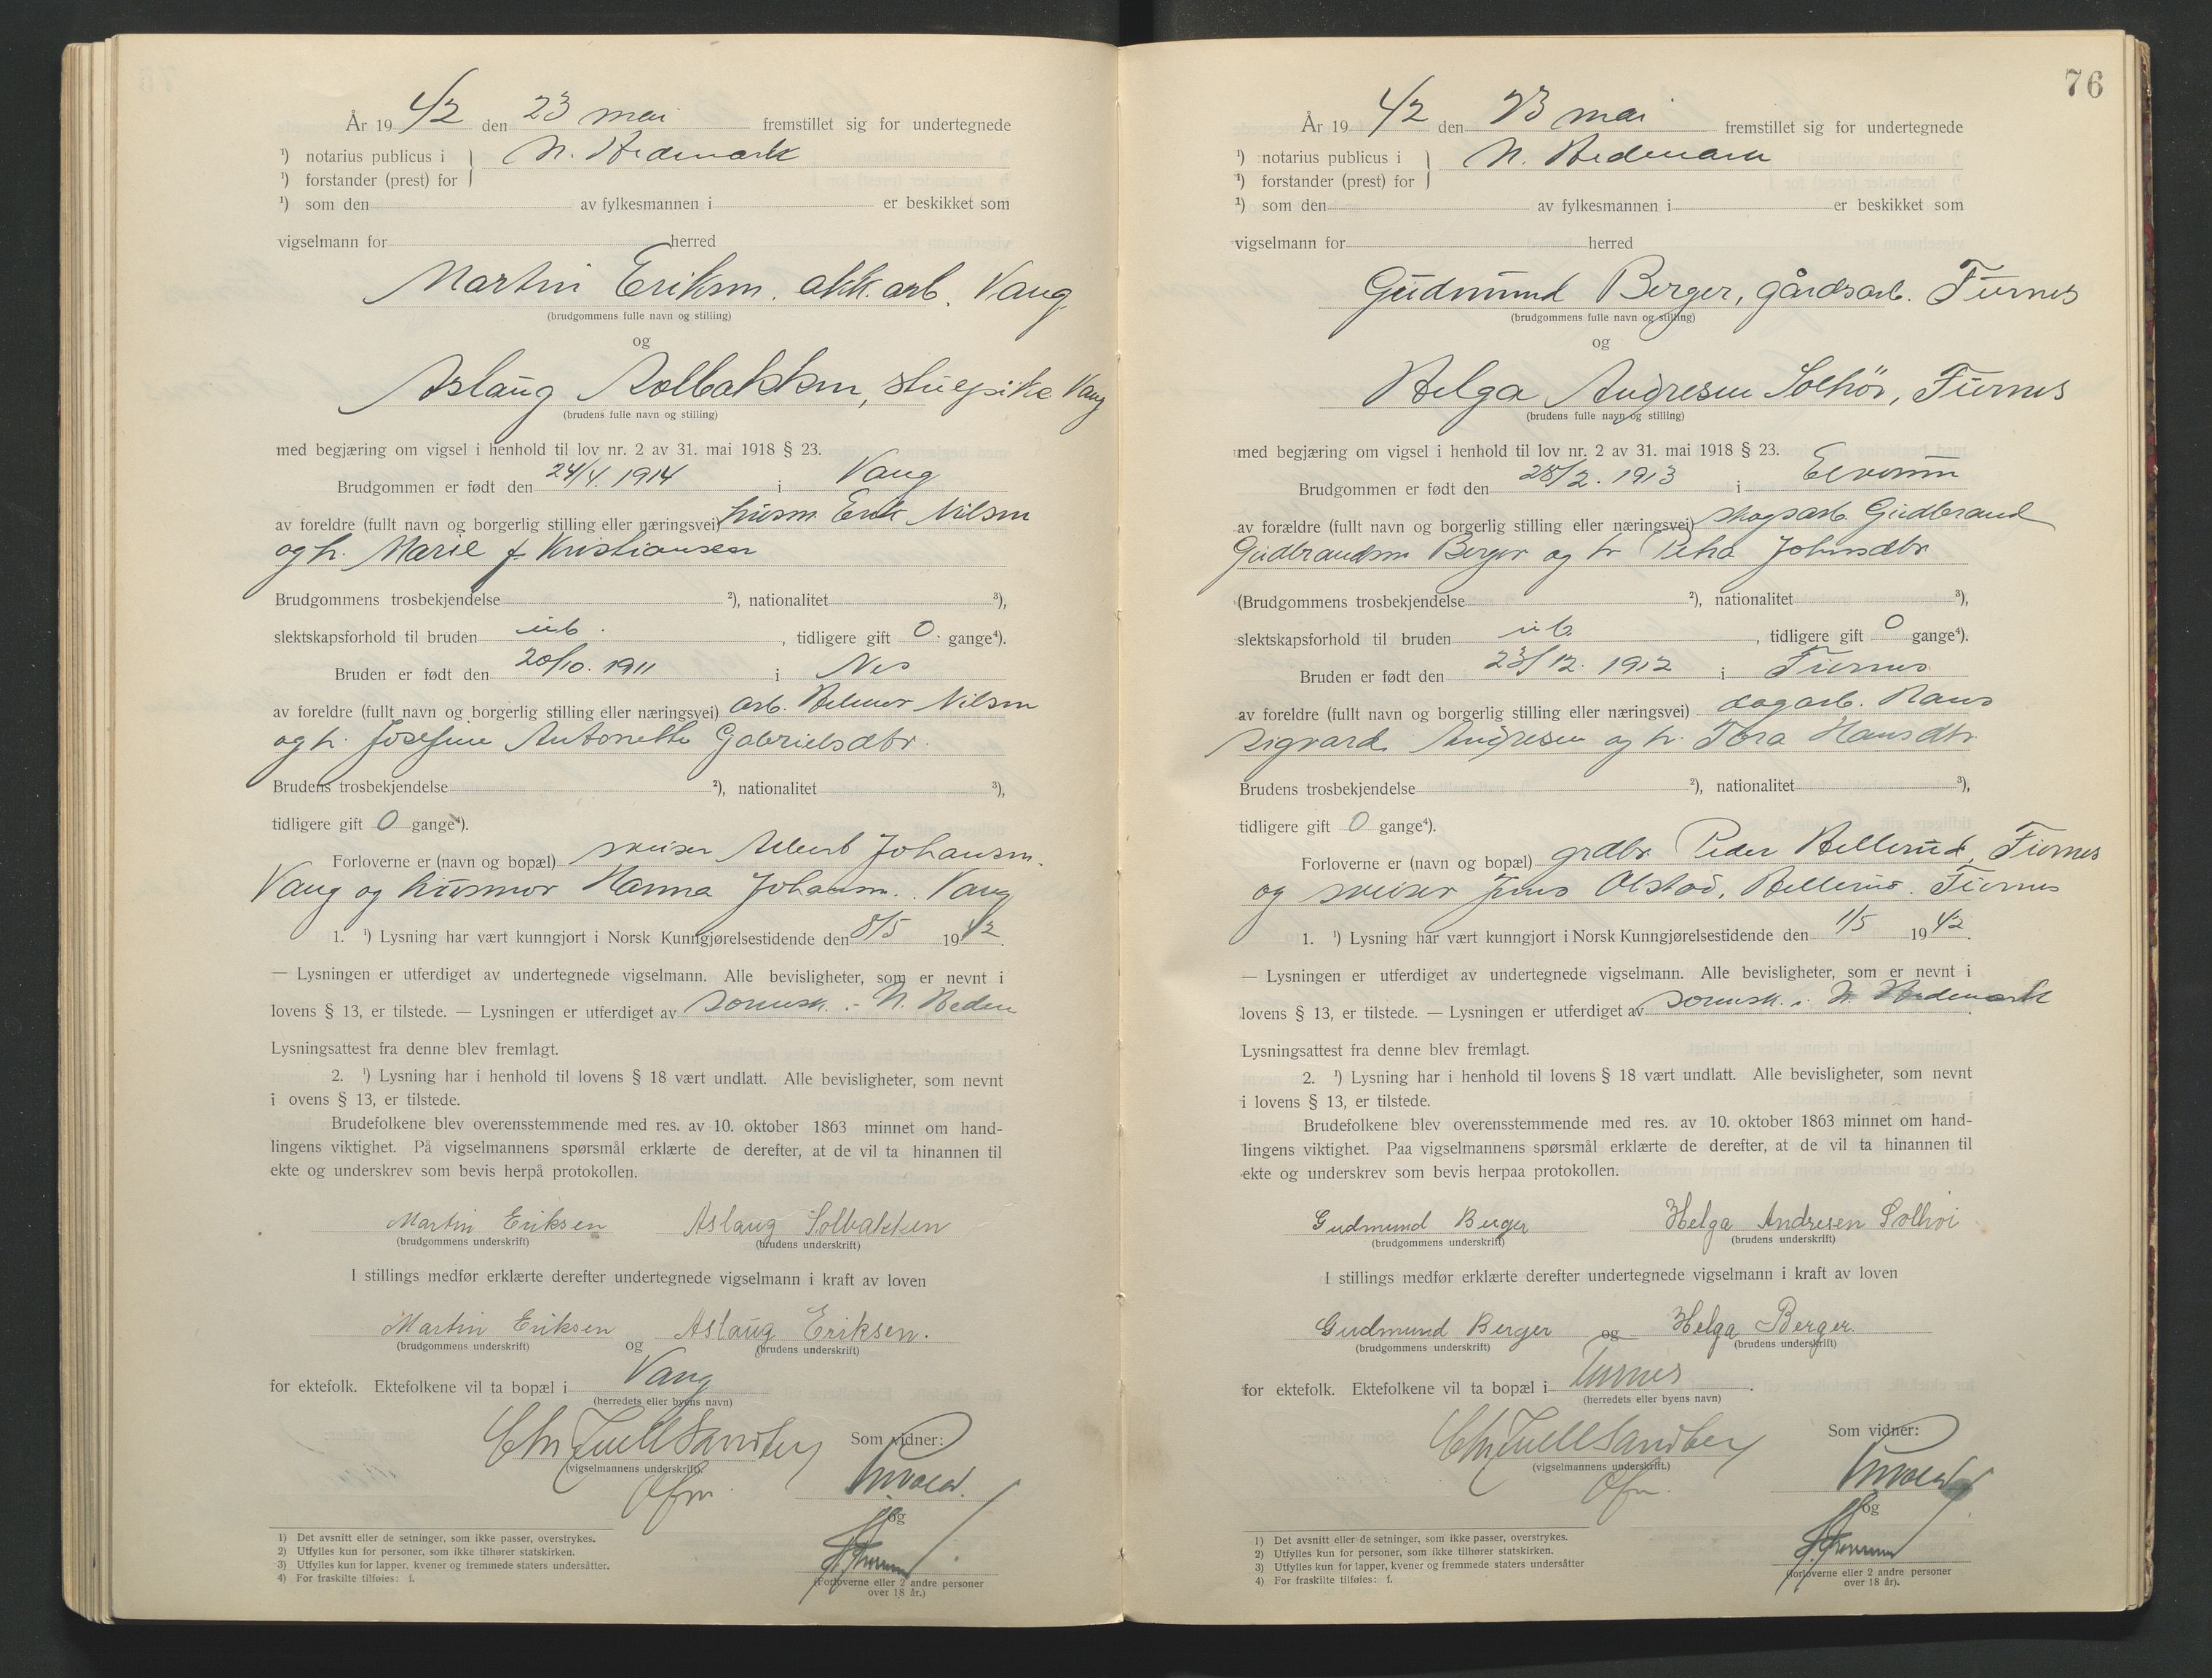 År 19 42 den 23 mai fremstillet sig for undertegnede
¹) notarius publicus i } N. Hedemark
¹) forstander (prest) for
¹) som den av fylkesmannen i er beskikket som
vigselmann for herred
Martin Eriksen, akk.arb. Vang
(brudgommens fulle navn og stilling)
og
Aslaug Solbakken, stuepike Vang
(brudens fulle navn og stilling)
med begjæring om vigsel i henhold til lov nr. 2 av 31. mai 1918 § 23.
Brudgommen er født den 24/4. 1914 i Vang
av foreldre (fullt navn og borgerlig stilling eller næringsvei) husm. Erik Nilsen
og h. Marie f. Kristiansen
Brudgommens trosbekjendelse ²), nationalitet ³),
slektskapsforhold til bruden ub. , tidligere gift 0 gange⁴).
Bruden er født den 20/10. 1911 i Nes
av foreldre (fullt navn og borgerlig stilling eller næringsvei) arb. Helmer Nilsen
og h. Josefine Antonette Gabrielsdtr.
Brudens trosbekjendelse ²), nationalitet ³),
tidligere gift 0 gange⁴).
Forloverne er (navn og bopæl) sveiser Albert Johansen.
Vang og husmor Hanna Johansen. Vang
1. ¹) Lysning har vært kunngjort i Norsk Kunngjørelsestidende den 8/5 19 42.
— Lysningen er utferdiget av undertegnede vigselmann. Alle bevisligheter, som er nevnt i
lovens § 13, er tilstede. — Lysningen er utferdiget av sorensk. i N. Hedem
Lysningsattest fra denne blev fremlagt.
2. ¹) Lysning har i henhold til lovens § 18 vært undlatt. Alle bevisligheter, som nevnt
i ovens § 13, er tilstede.
Brudefolkene blev overensstemmende med res. av 10. oktober 1863 minnet om hand-
lingens viktighet. På vigselmannens spørsmål erklærte de derefter, at de vil ta hinannen til
ekte og underskrev som bevis herpå protokollen.
Martin Eriksen Aslaug Solbakken
(brudgommens underskrift) (brudens underskrift)
I stillings medfør erklærte derefter undertegnede vigselmann i kraft av loven
Martin Eriksen og Aslaug Eriksen.
(brudgommens underskrift) (brudens underskrift)
for ektefolk. Ektefolkene vil ta bopæl i Vang
(herredets eller byens navn)
Chr Juell Sandberg Som vidner:
(vigselmannens underskrift).
og
1) Det avsnitt eller de setninger, som ikke passer, overstrykes.
2) Utfylles kun for personer, som ikke tilhører statskirken.
3) Utfylles kun for lapper, kvener og fremmede staters undersåtter.
4) For fraskilte tilføies: f.
(Forloverne eller 2 andre personer
over 18 år.)
76
År 19 42 den 23 mai fremstillet sig for undertegnede
¹) notarius publicus i } N. Hedemark
¹) forstander (prest) for
¹) som den av fylkesmannen i er beskikket som
vigselmann for herred
Gudmund Berger, gårdsarb. Furnes
(brudgommens fulle navn og stilling)
og
Helga Andresen Solhöi, Furnes
(brudens fulle navn og stilling)
med begjæring om vigsel i henhold til lov nr. 2 av 31. mai 1918 § 23.
Brudgommen er født den 28/2. 1913 i Elverum
av forældre (fullt navn og borgerlig stilling eller næringsvei) skogsarb. Gudbrand
Gudbrandsen Berger og h. Petra Johnsdtr
(Brudgommens trosbekjendelse ²), nationalitet ³),
slektskapsforhold til bruden ub. , tidligere gift 0 gange⁴).
Bruden er født den 23/12. 1912 i Furnes
av foreldre (fullt navn og borgerlig stilling eller næringsvei) dagarb. Hans
Sigvard Andresen og h. Thra Hansdtr.
Brudens trosbekjendelse ²), nationalitet ³),
tidligere gift 0 gange⁴).
Forloverne er (navn og bopæl) grdbr. Peder Hellerud, Furnes
og sveiser Jens Olstad, Hellerud. Furnes
1. ¹) Lysning har vært kunngjort i Norsk Kunngjørelsestidende den 1/5 19 42.
— Lysningen er utferdiget av undertegnede vigselmann. Alle bevisligheter, som er nevnt i
lovens § 13, er tilstede. — Lysningen er utferdiget av sorensk. i N. Hedemark
Lysningsattest fra denne blev fremlagt.
2. ¹) Lysning har i henhold til lovens § 18 vært undlatt. Alle bevisligheter, som nevnt
i lovens § 13, er tilstede.
Brudefolkene blev overensstemmende med res. av 10. oktober 1863 minnet om hand-
lingens viktighet. Paa vigselmannens spørsmål erklærte de derefter, at de vil ta hinannen til
ekte og underskrev som bevis herpaa protokollen.
Gudmund Berger Helga Andresen Solhöi
(brudgommens underskrift) (brudens underskrift)
I stillings medfør erklærte derefter undertegnede vigselmann i kraft av loven
Gudmund Berger og Helga Berger.
(brudgommens underskrift) (brudens underskrift)
for ektefolk. Ektefolkene vil ta bopæl i Furnes.
(herredets eller byens navn)
Chr Juell Sandberg Som vidner:
(vigselmannens underskrift.)
og
1) Det avsnitt eller de setninger, som ikke passer, overstrykes.
2) Utfylles kun for personer, som ikke tilhører statskirken.
3) Utfylles kun for lapper, kvener og fremmede staters undersåtter
4) For fraskilte tilføies: f.
(forloverne eller 2 andre personer
over 18 år).